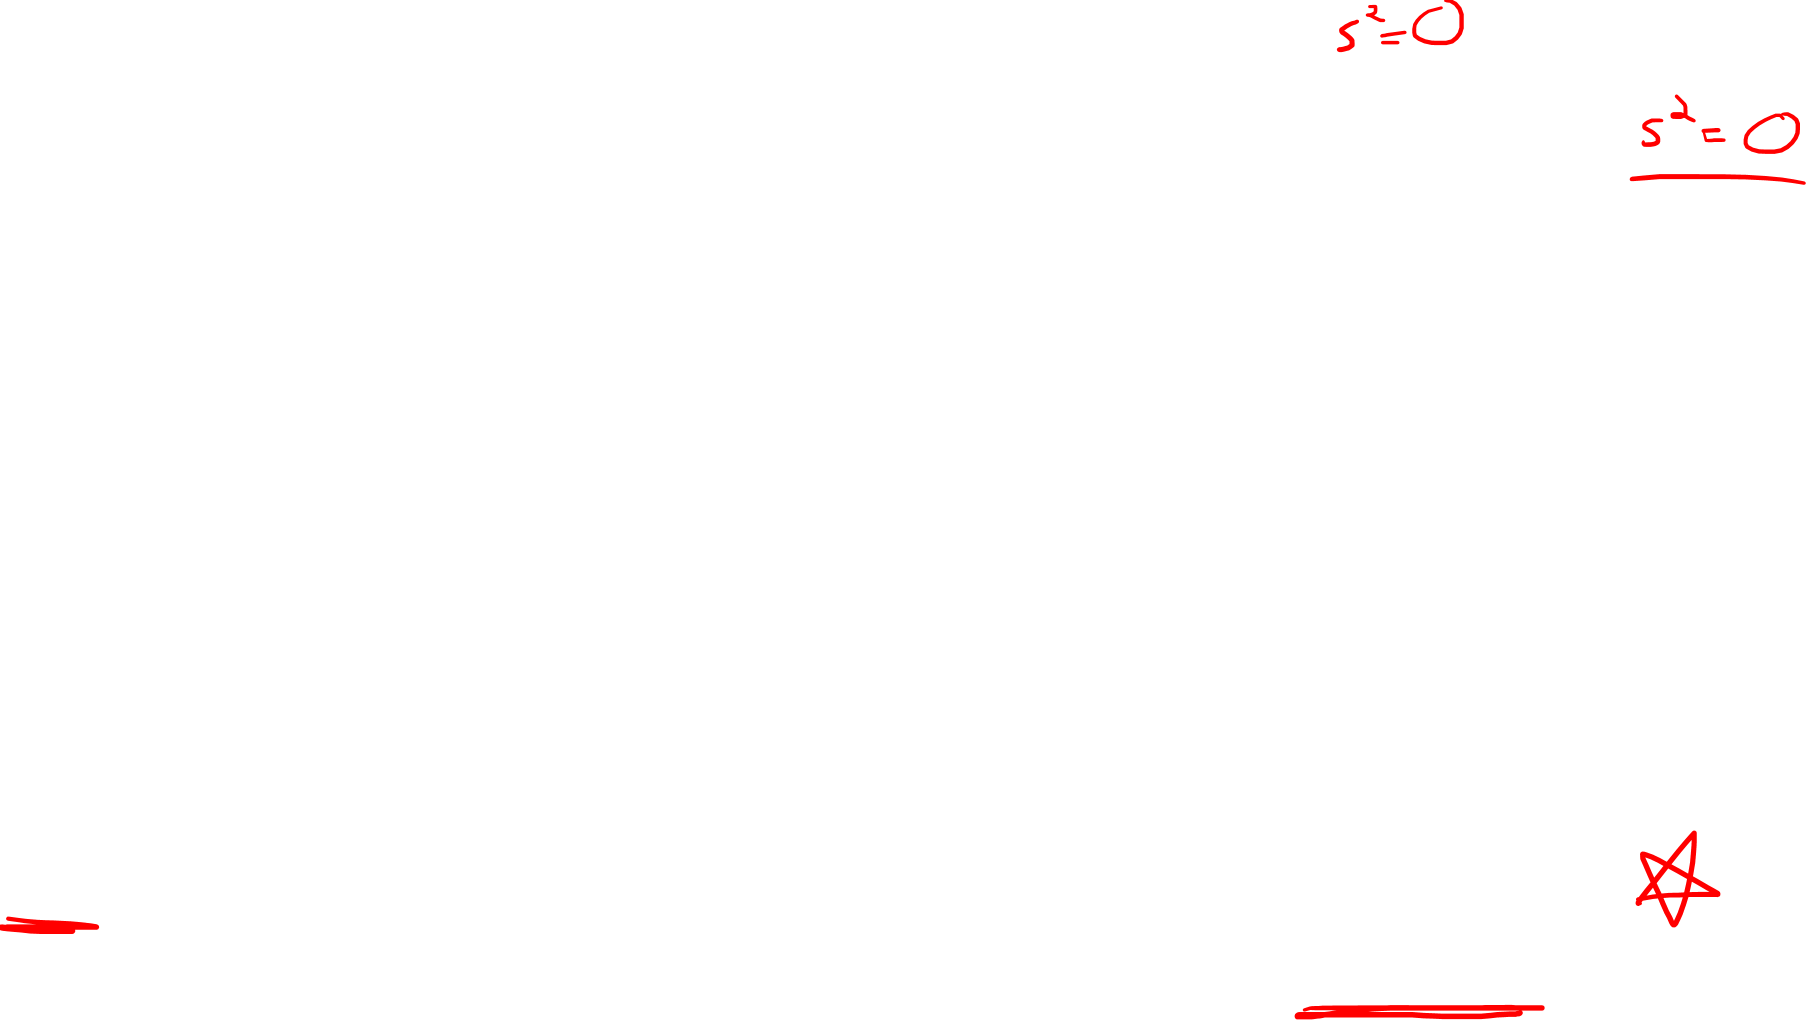 s²=0
s²=0